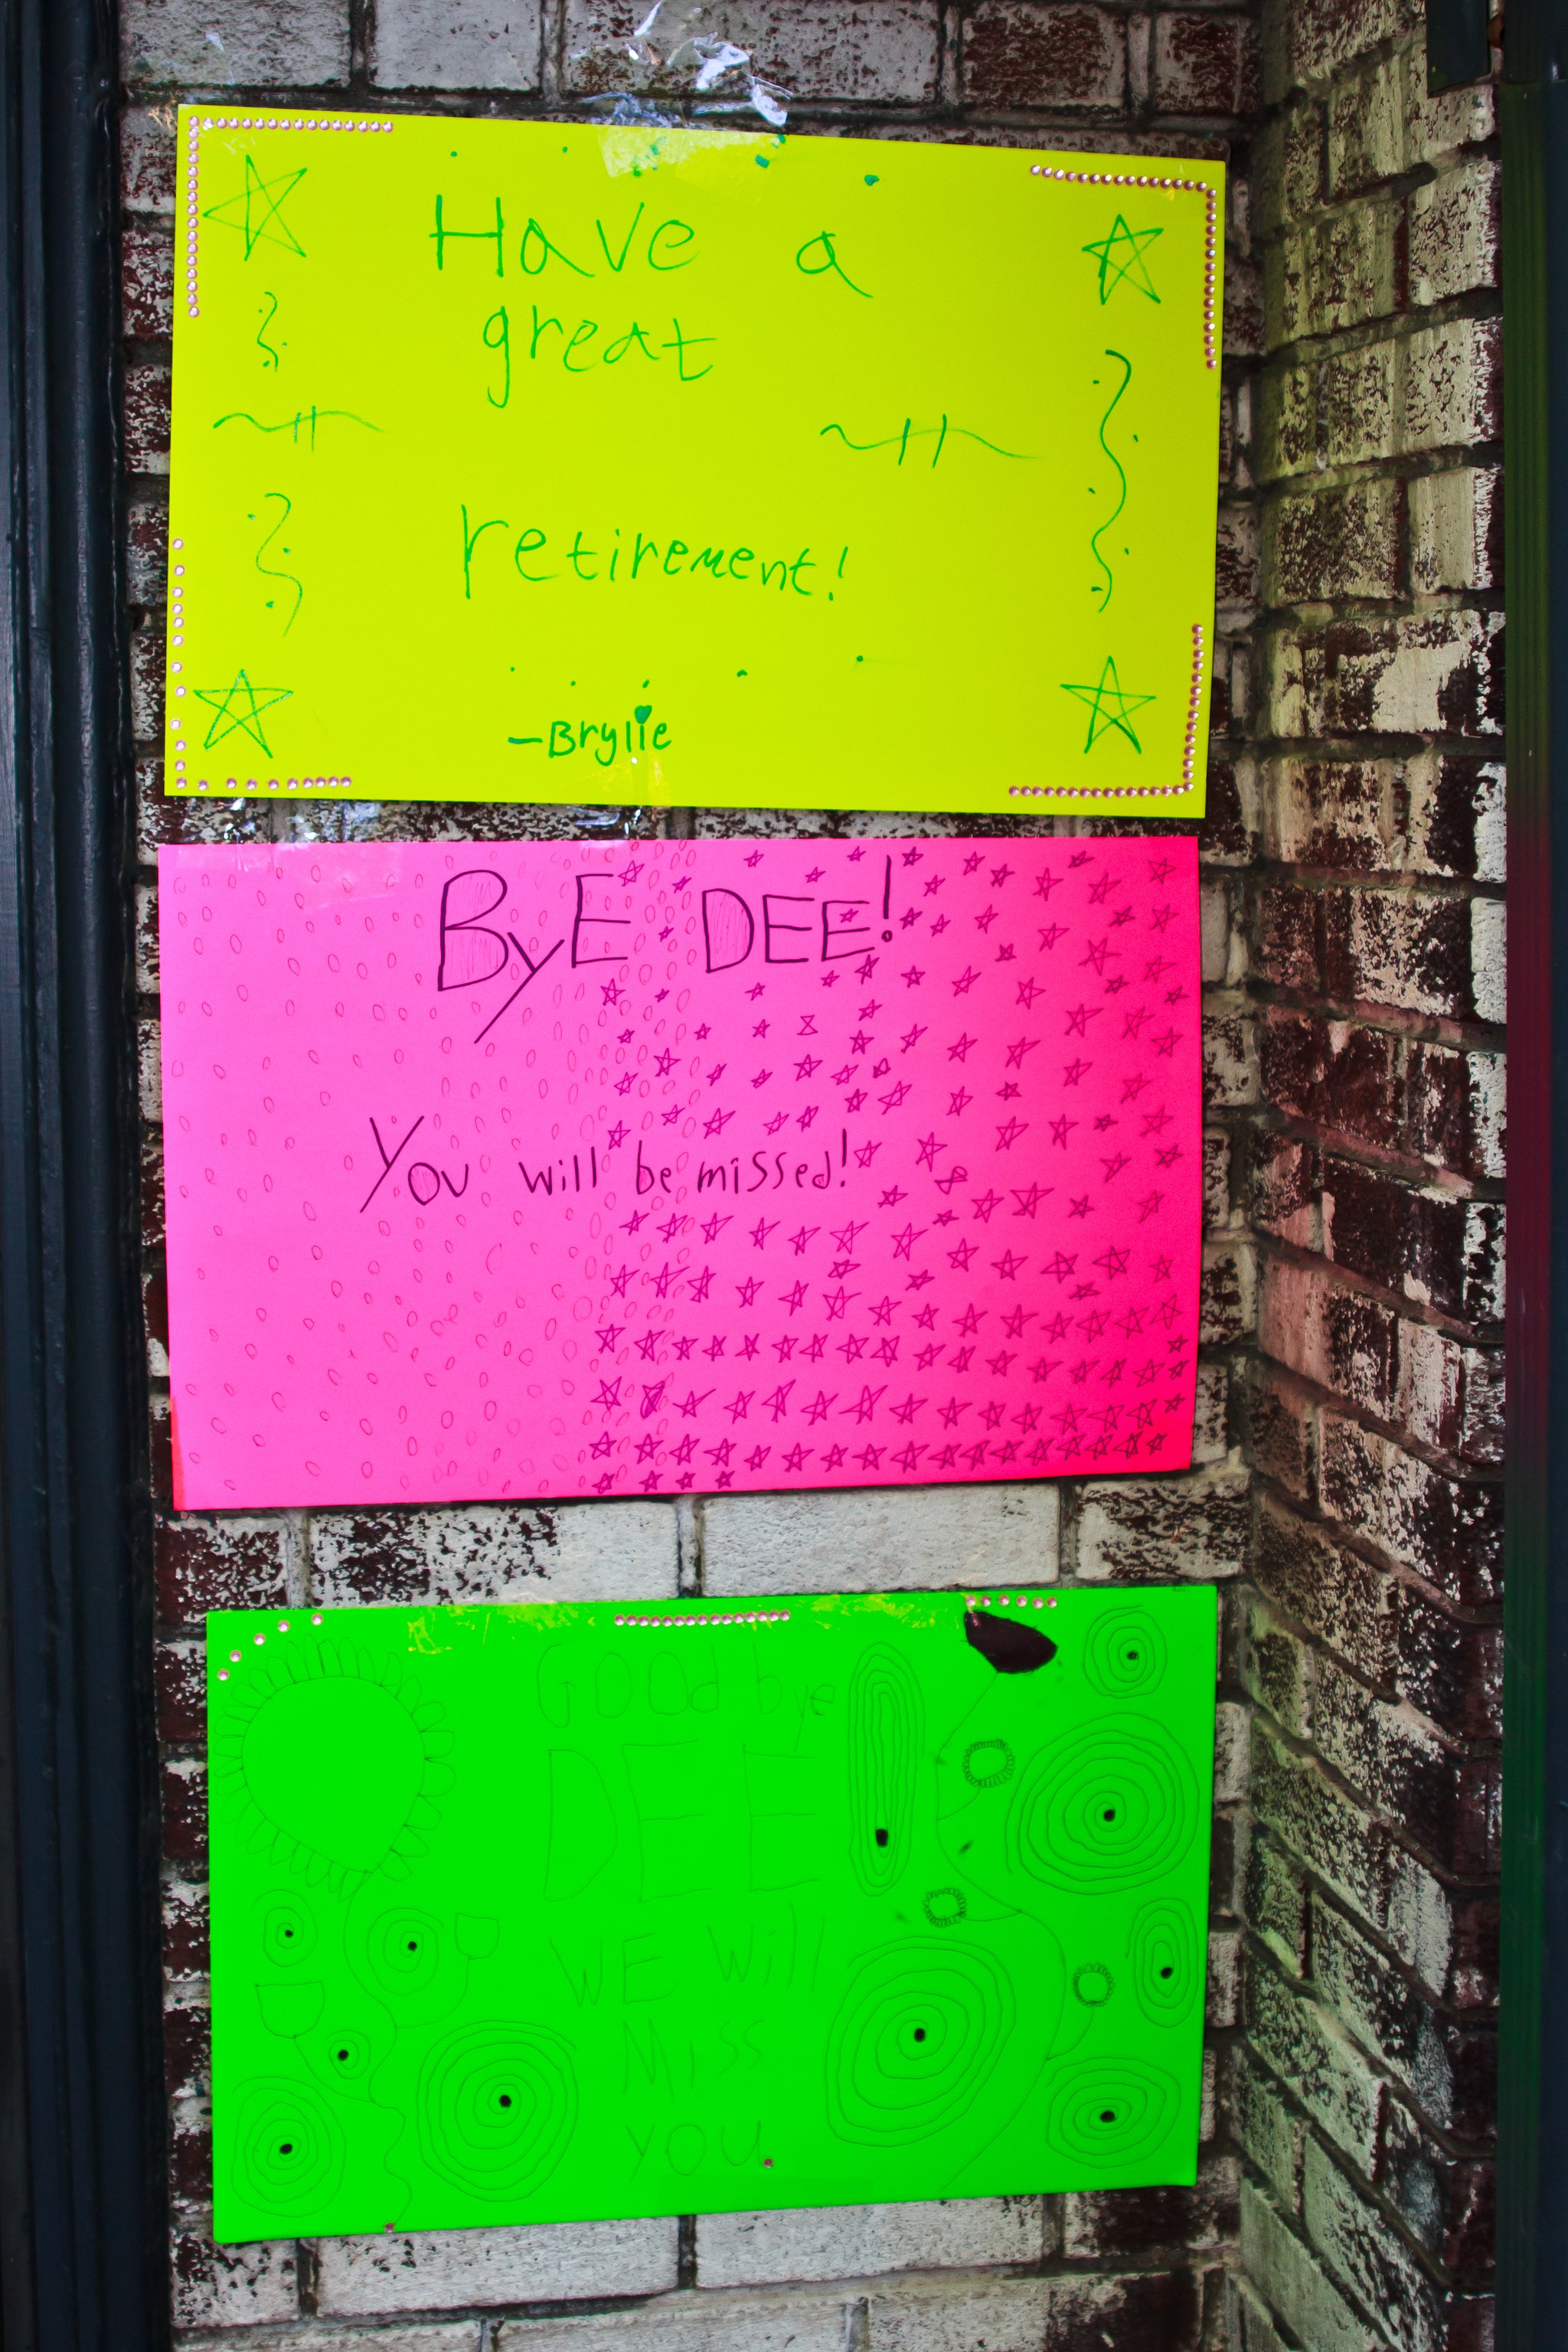 Have a
great
retirement!
-Brylie
ByE DEE!
You will be missed!
GOOd bye
DEE
WE Will
Miss
YOU.